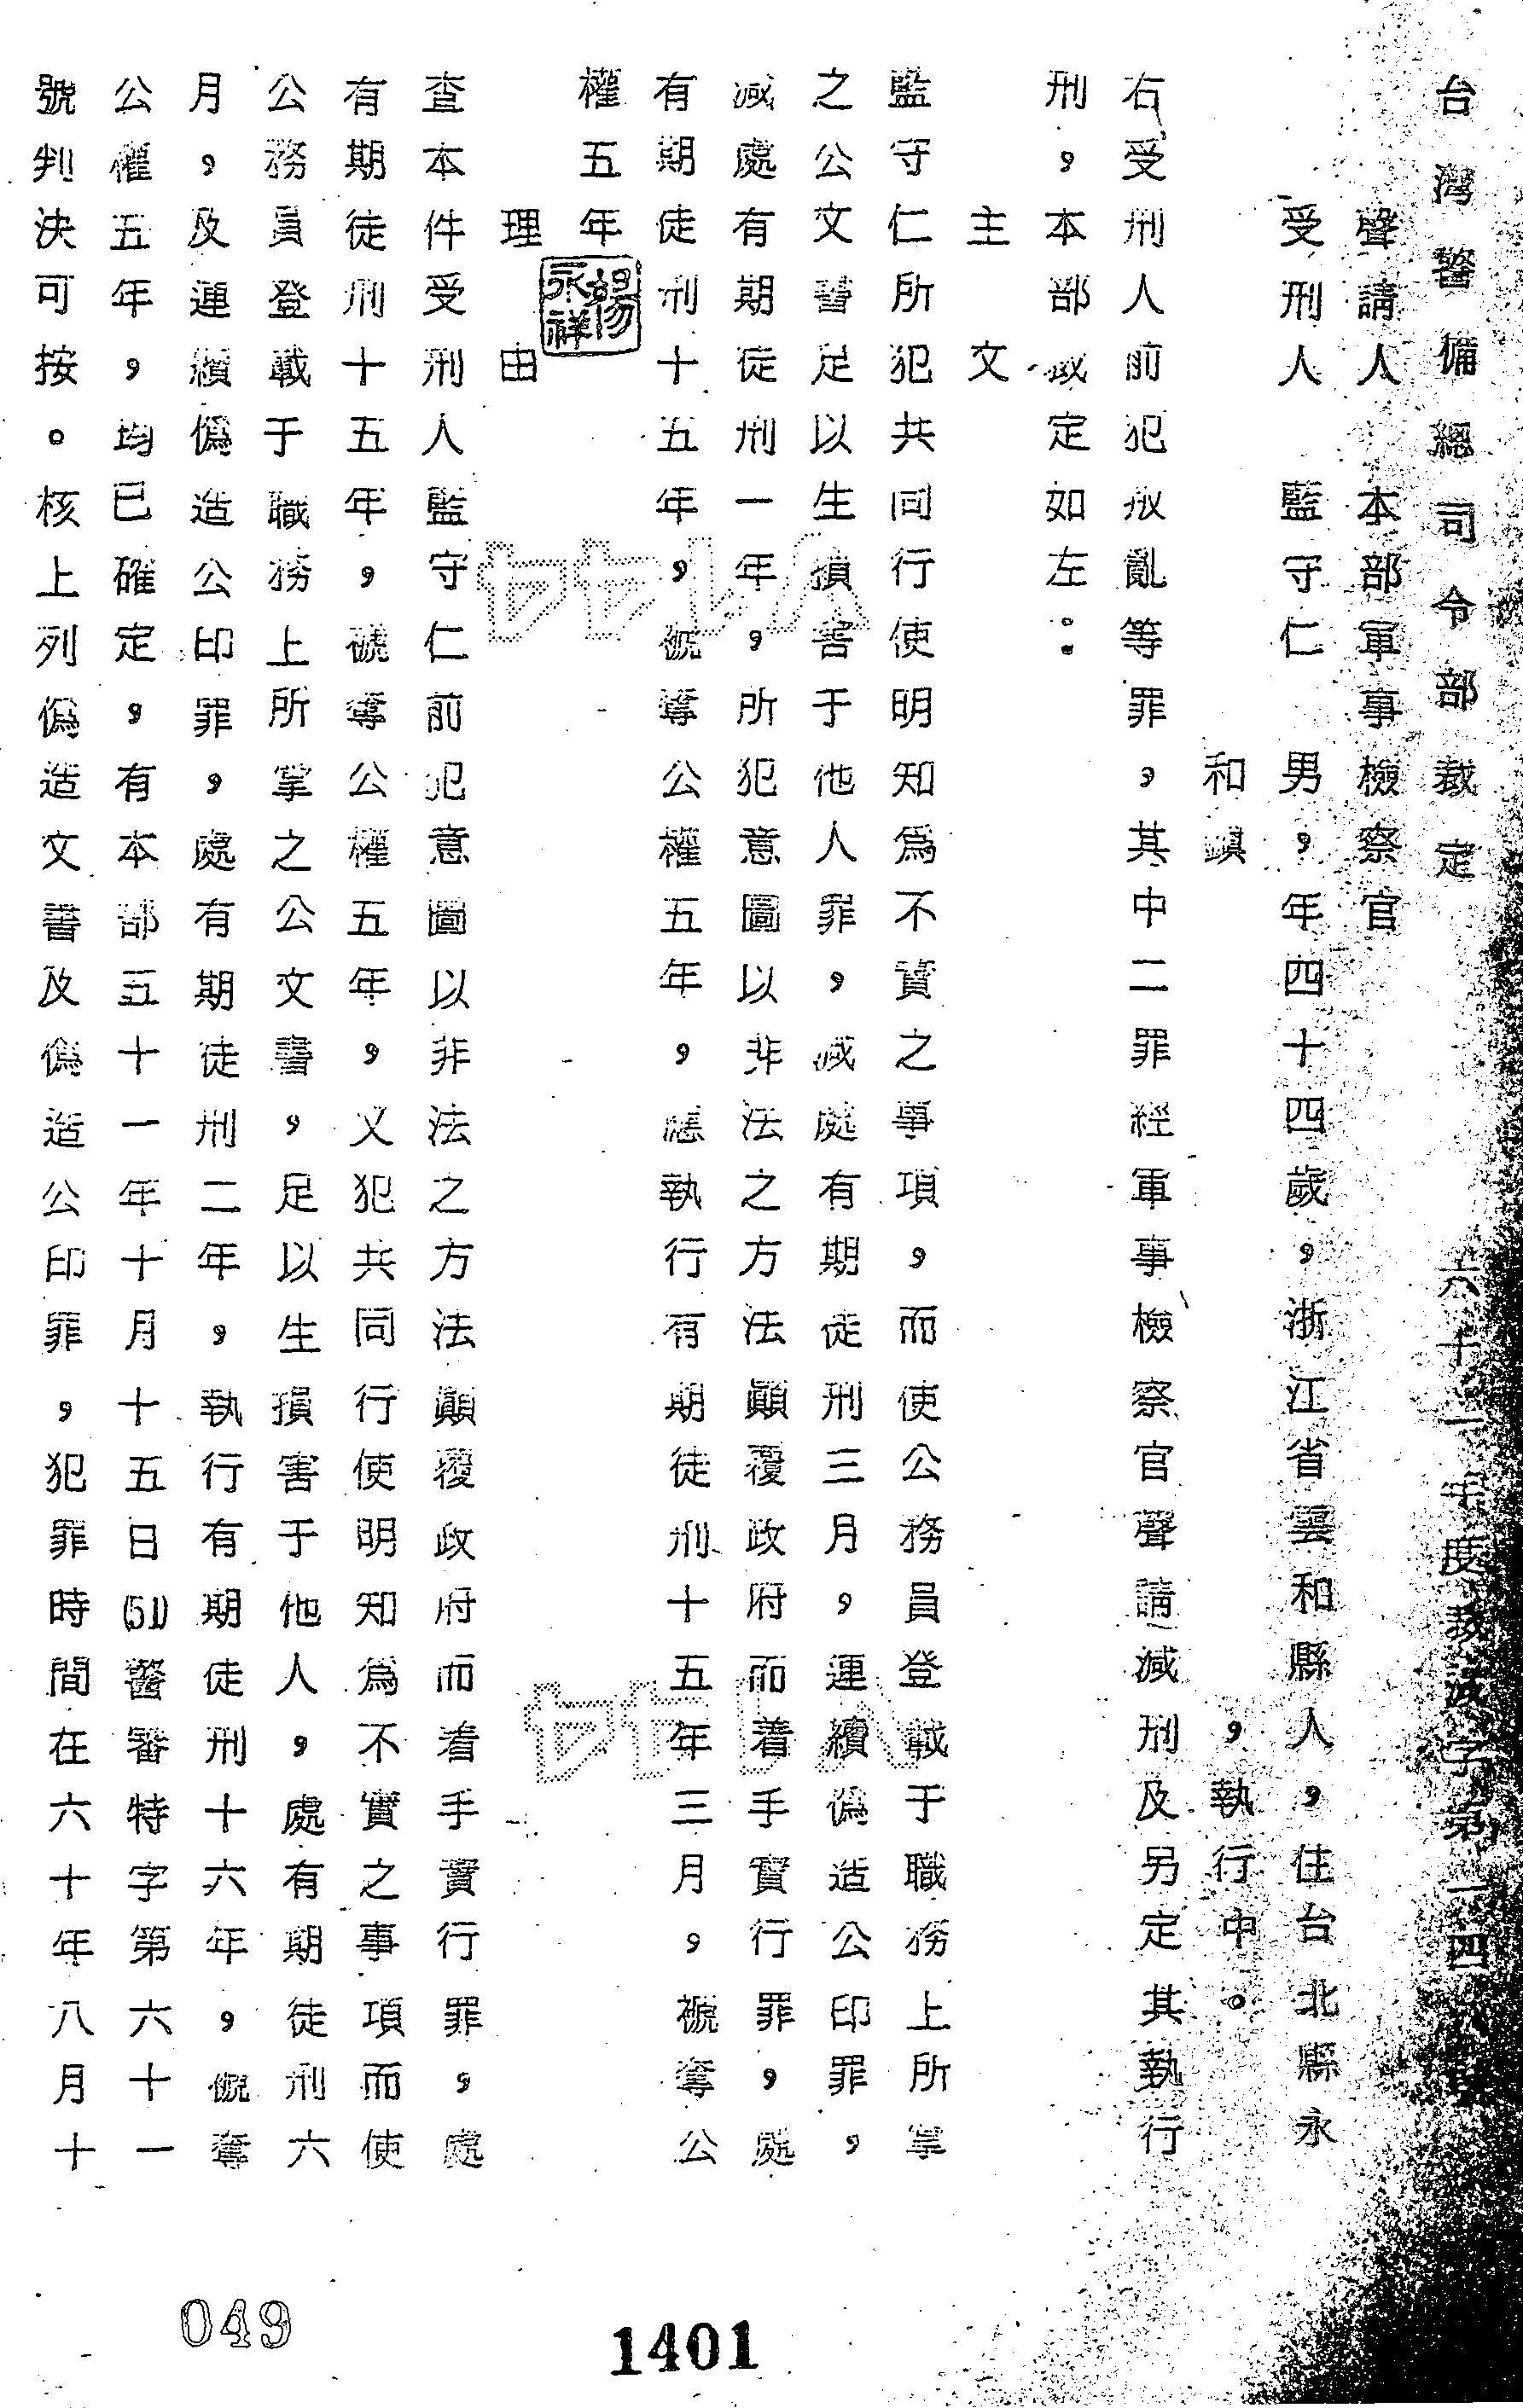 台灣警備總司令部裁定　六十一年度裁減字第一四
聲請人　本部軍事檢察官
受刑人　監守仁　男，年四十四歲，浙江省雲和縣人，住台北縣永
和鎮　，執行中。
右受刑人前犯叛亂等罪，其中二罪經軍事檢察官聲請減刑及另定其執行
刑，本部裁定如左：
主文
監守仁所犯共同行使明知為不實之事項，而使公務員登載于職務上所掌
之公文書足以生損害于他人罪，減處有期徒刑三月，連續偽造公印罪，
減處有期徒刑一年，所犯意圖以非法之方法顛覆政府而着手實行罪，處
有期徒刑十五年，褫奪公權五年，應執行有期徒刑十五年三月，褫奪公
權五年
楊永祥
理由
查本件受刑人監守仁前犯意圖以非法之方法顛覆政府而着手實行罪，處
有期徒刑十五年，褫奪公權五年，又犯共同行使明知為不實之事項而使
公務員登載于職務上所掌之公文書，足以生損害于他人，處有期徒刑六
月，及連續偽造公印罪，處有期徒刑二年，執行有期徒刑十六年，褫奪
公權五年，均已確定，有本部五十一年十月十五日(51)警審特字第六十一
號判決可按。核上列偽造文書及偽造公印罪，犯罪時間在六十年八月十
049
1401